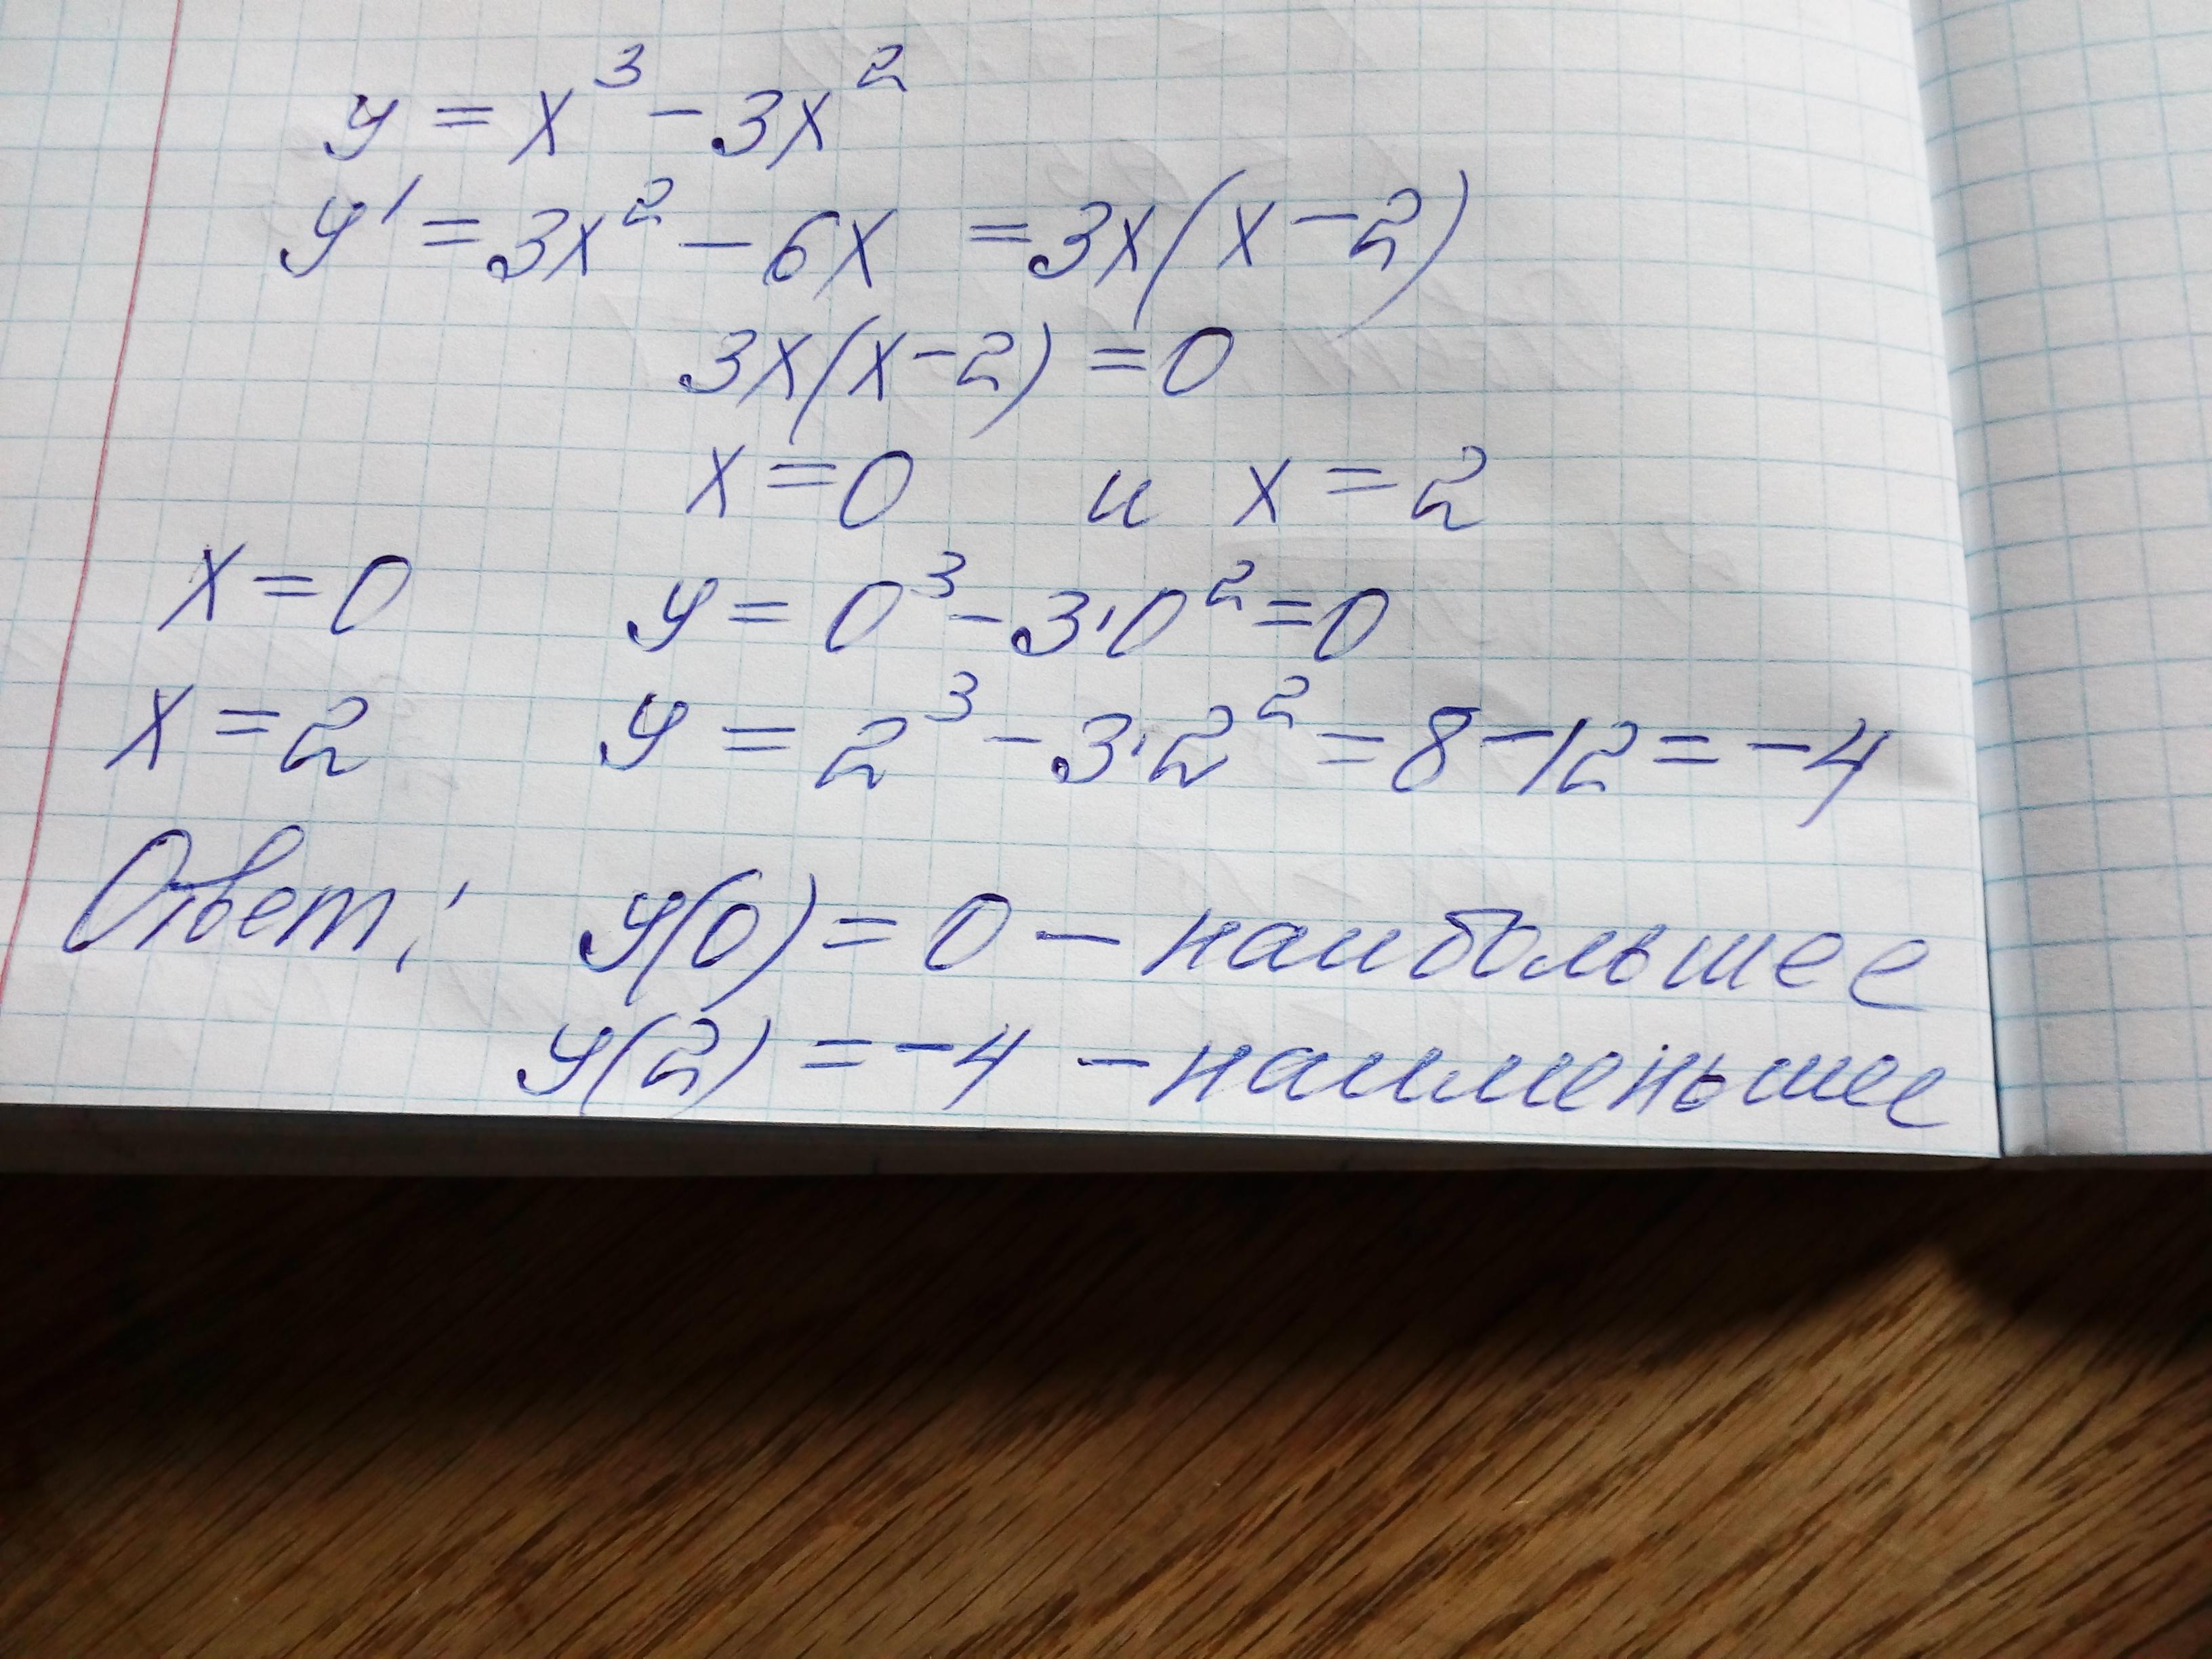 y = x³ - 3x²
y' = 3x² - 6x = 3x(x-2)
3x(x-2) = 0
x = 0 и x = 2
x = 0 y = 0³ - 3·0² = 0
x = 2 y = 2³ - 3·2² = 8 - 12 = -4
Ответ: y(0) = 0 - наибольшее
y(2) = -4 - наименьшее